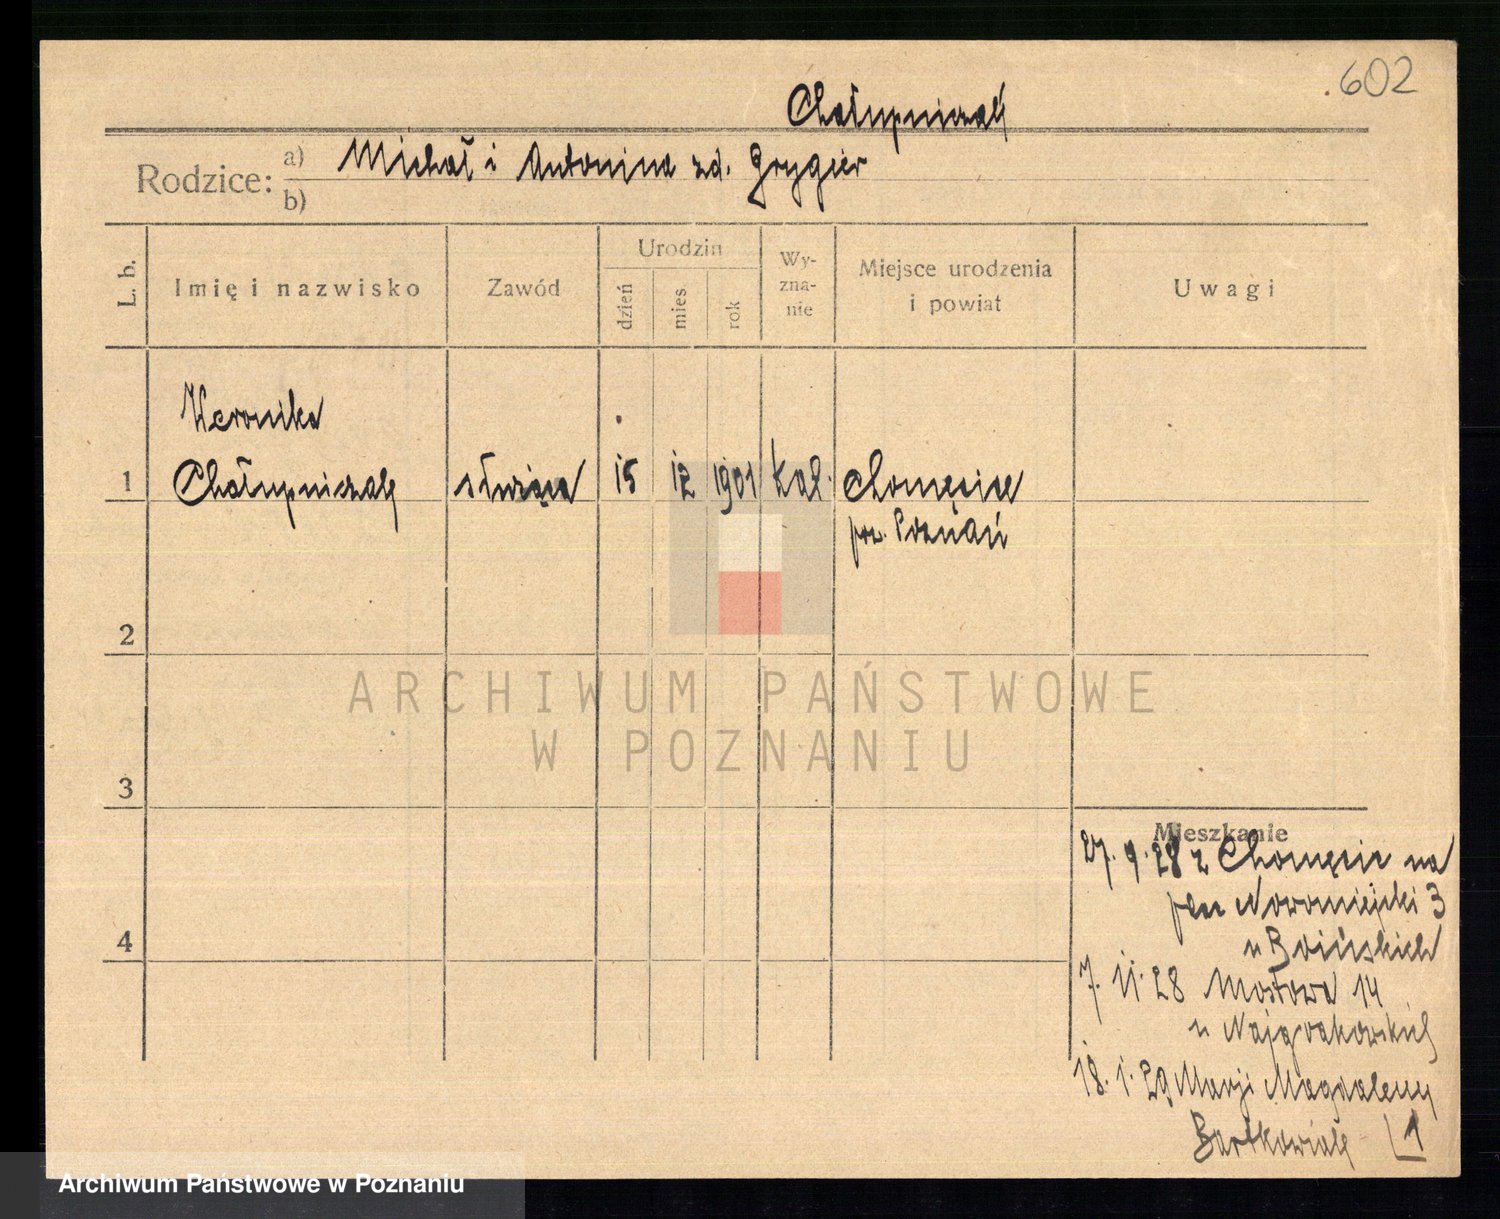 602
Chałupniczak
Rodzice: a) Michał i Antonina zd. Grygier
b)
L. b.
Imię i nazwisko
Zawód
Urodzin
dzień
mies
rok
Wy-
zna-
nie
Miejsce urodzenia
i powiat
Uwagi
Weronika
1 Chałupniczak służąca 15 12 1901 kat. Chomęcice
pow. Poznań
2
3
4
Mieszkanie
27. 9. 28 z Chomęcic na
plac Nowomiejski 3
u
7. 11. 28 Mostowa 14
u Najgrakowskich
18. 1. 29 Marji Magdaleny
Bartkowiak 1
ARCHIWUM PAŃSTWOWE
W POZNANIU
Archiwum Państwowe w Poznaniu